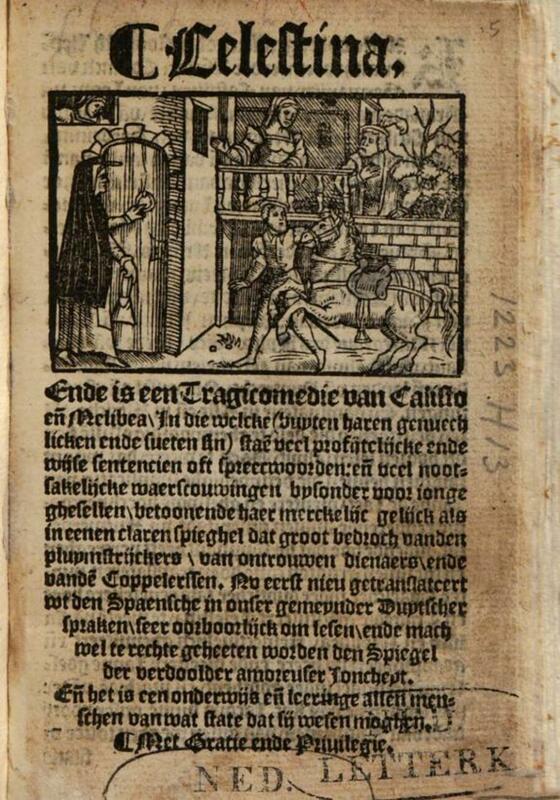 5
¶ Celestina.
Ende is een Tragicomedie van Calisto
eñ Melibea\ In die welcke (buyten haren genuech
licken ende sueten sin) staē veel profijtelijcke ende
wijse sentencien oft spreecwoorden: eñ veel noot-
sakelijcke waerscouwingen bysonder voor ionge
ghesellen\ betoonende haer merckelijc gelijck als
in eenen claren spieghel dat groot bedroch vanden
pluymstrijckers \ van ontrouwen dienaers\ ende
vandē Coppelerssen. Nv eerst nieu getranslateert
wt den Spaensche in onser gemeynder Duytscher
spraken\ seer oorboorlijck om lesen\ ende mach
wel te rechte geheeten worden den Spiegel
der verdoolder amoreuser Jonchept.
Eñ het is een onderwijs eñ leeringe allen men-
schen van wat state dat sij wesen moghen.
¶ Met Gratie ende Privilegie.
NED. LETTERK
1225 H 13